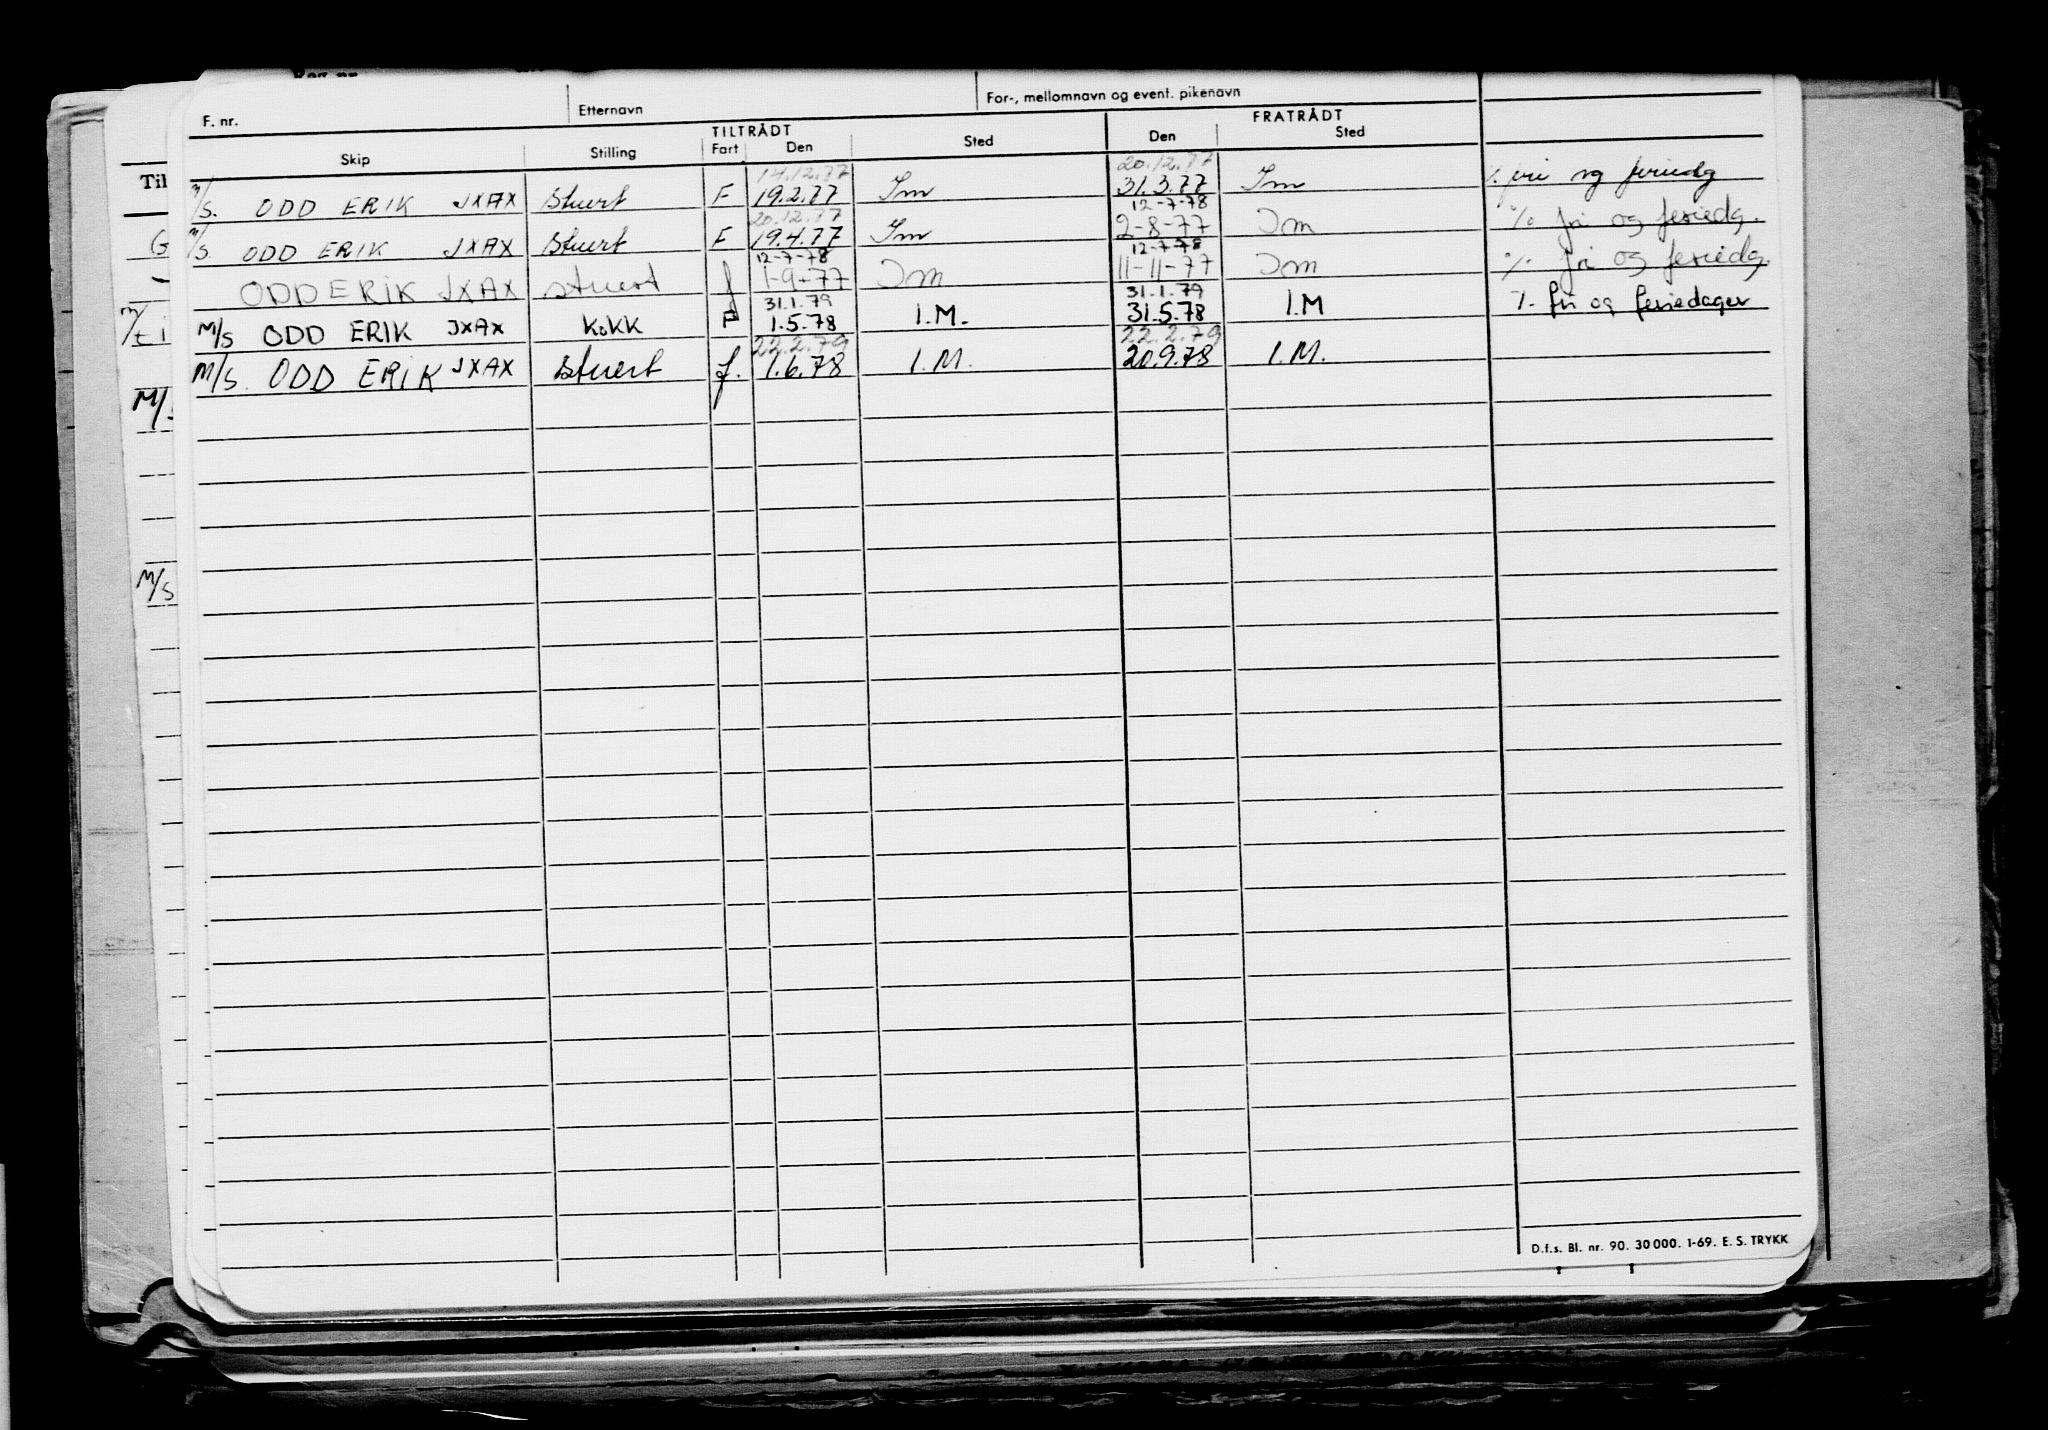 F. nr. Etternavn For-, mellomnavn og event. pikenavn
TILTRÅDT FRATRÅDT
Skip Stilling Fart Den Sted Den Sted
Til
14.12.77 20.12.77
M/S. ODD ERIK JXAX Stuert F 19.2.77 Im 31.3.77 Im %. fri og feriedg
20.12.77 12-7-78
M/S. ODD ERIK JXAX Stuert F 19.4.77 Im 2-8-77 Im % fri og feriedg.
12-7-78 12-7-78
ODD ERIK JXAX stuert f 1-9-77 Im 11-11-77 Im %. fri og feriedg.
31.1.79 31.1.79
M/S ODD ERIK JXAX KoKK F 1.5.78 I.M. 31.5.78 I.M %. fri og feriedager
22.2.79 22.2.79
M/S. ODD ERIK JXAX Stuert f. 1.6.78 I.M. 20.9.78 I.M.
M/S
D.f.s. Bl. nr. 90. 30 000. 1-69. E. S. TRYKK